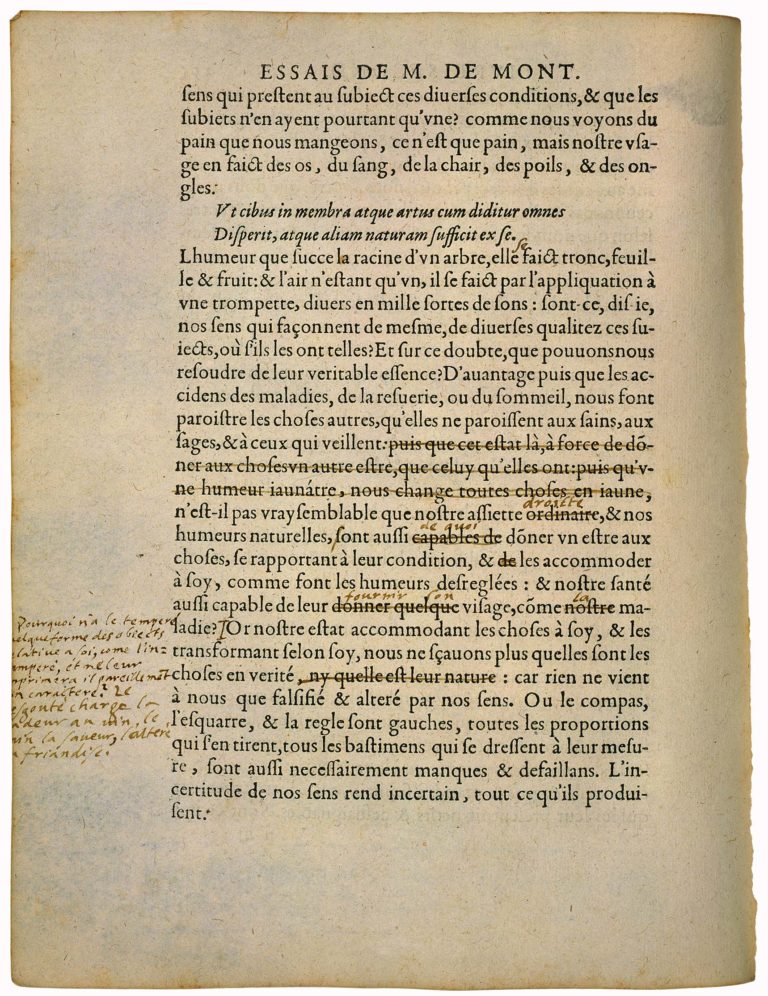 ESSAIS DE M. DE MONT.
ſens qui preſtent au ſubiect ces diuerſes conditions, & que les
ſubiets n'en ayent pourtant qu'vne? comme nous voyons du
pain que nous mangeons, ce n'eſt que pain, mais noſtre vſa-
ge en faict des os, du ſang, de la chair, des poils, & des on-
gles:
Vt cibus in membra atque artus cum diditur omnes
Diſperit, atque aliam naturam ſufficit ex ſe.
ſe
Lhumeur que ſucce la racine d'vn arbre, elle faict tronc, feuil-
le & fruit: & l'air n'eſtant qu'vn, il ſe faict par l'appliquation à
vne trompette, diuers en mille ſortes de ſons: ſont-ce, diſ-ie,
nos ſens qui façonnent de meſme, de diuerſes qualitez ces ſu-
iects, où s'ils les ont telles? Et ſur ce doubte, que pouuons nous
reſoudre de leur veritable eſſence? D'auantage puis que les ac-
cidens des maladies, de la reſuerie, ou du ſommeil, nous font
paroiſtre les choſes autres, qu'elles ne paroiſſent aux ſains, aux
ſages, & à ceux qui veillent: puis que cet eſtat là, à force de dō-
ner aux choſes vn autre eſtre, que celuy qu'elles ont: puis qu'v-
ne humeur iaunátre, nous change toutes choſes en iaune,
droitte
n'eſt-il pas vray ſemblable que noſtre aſſiette ordinaire, & nos
de quoi
humeurs naturelles, ſont auſſi capables de dōner vn eſtre aux
choſes, ſe rapportant à leur condition, & de les accommoder
à ſoy, comme font les humeurs deſreglées: & noſtre ſanté
fournir ſon la
auſſi capable de leur donner quelque viſage, cōme noſtre ma-
ladie? Or noſtre eſtat accommodant les choſes à ſoy, & les
transformant ſelon ſoy, nous ne ſçauons plus quelles ſont les
choſes en verité, ny quelle eſt leur nature: car rien ne vient
à nous que falſifié & alteré par nos ſens. Ou le compas,
l'eſquarre, & la regle ſont gauches, toutes les proportions
qui s'en tirent, tous les baſtimens qui ſe dreſſent à leur meſu-
re, ſont auſſi neceſſairement manques & defaillans. L'in-
certitude de nos ſens rend incertain, tout ce qu'ils produi-
ſent:
Pourquoi n'a le tempere
elque forme des obiects
lative a ſoi, come l'in-
mperé, et ne leur
mprimera il pareillemant
on caractere? Le
esgouté charge la
adeur au vin, le
ain la ſaveur, l'alteré
a friandiſe.